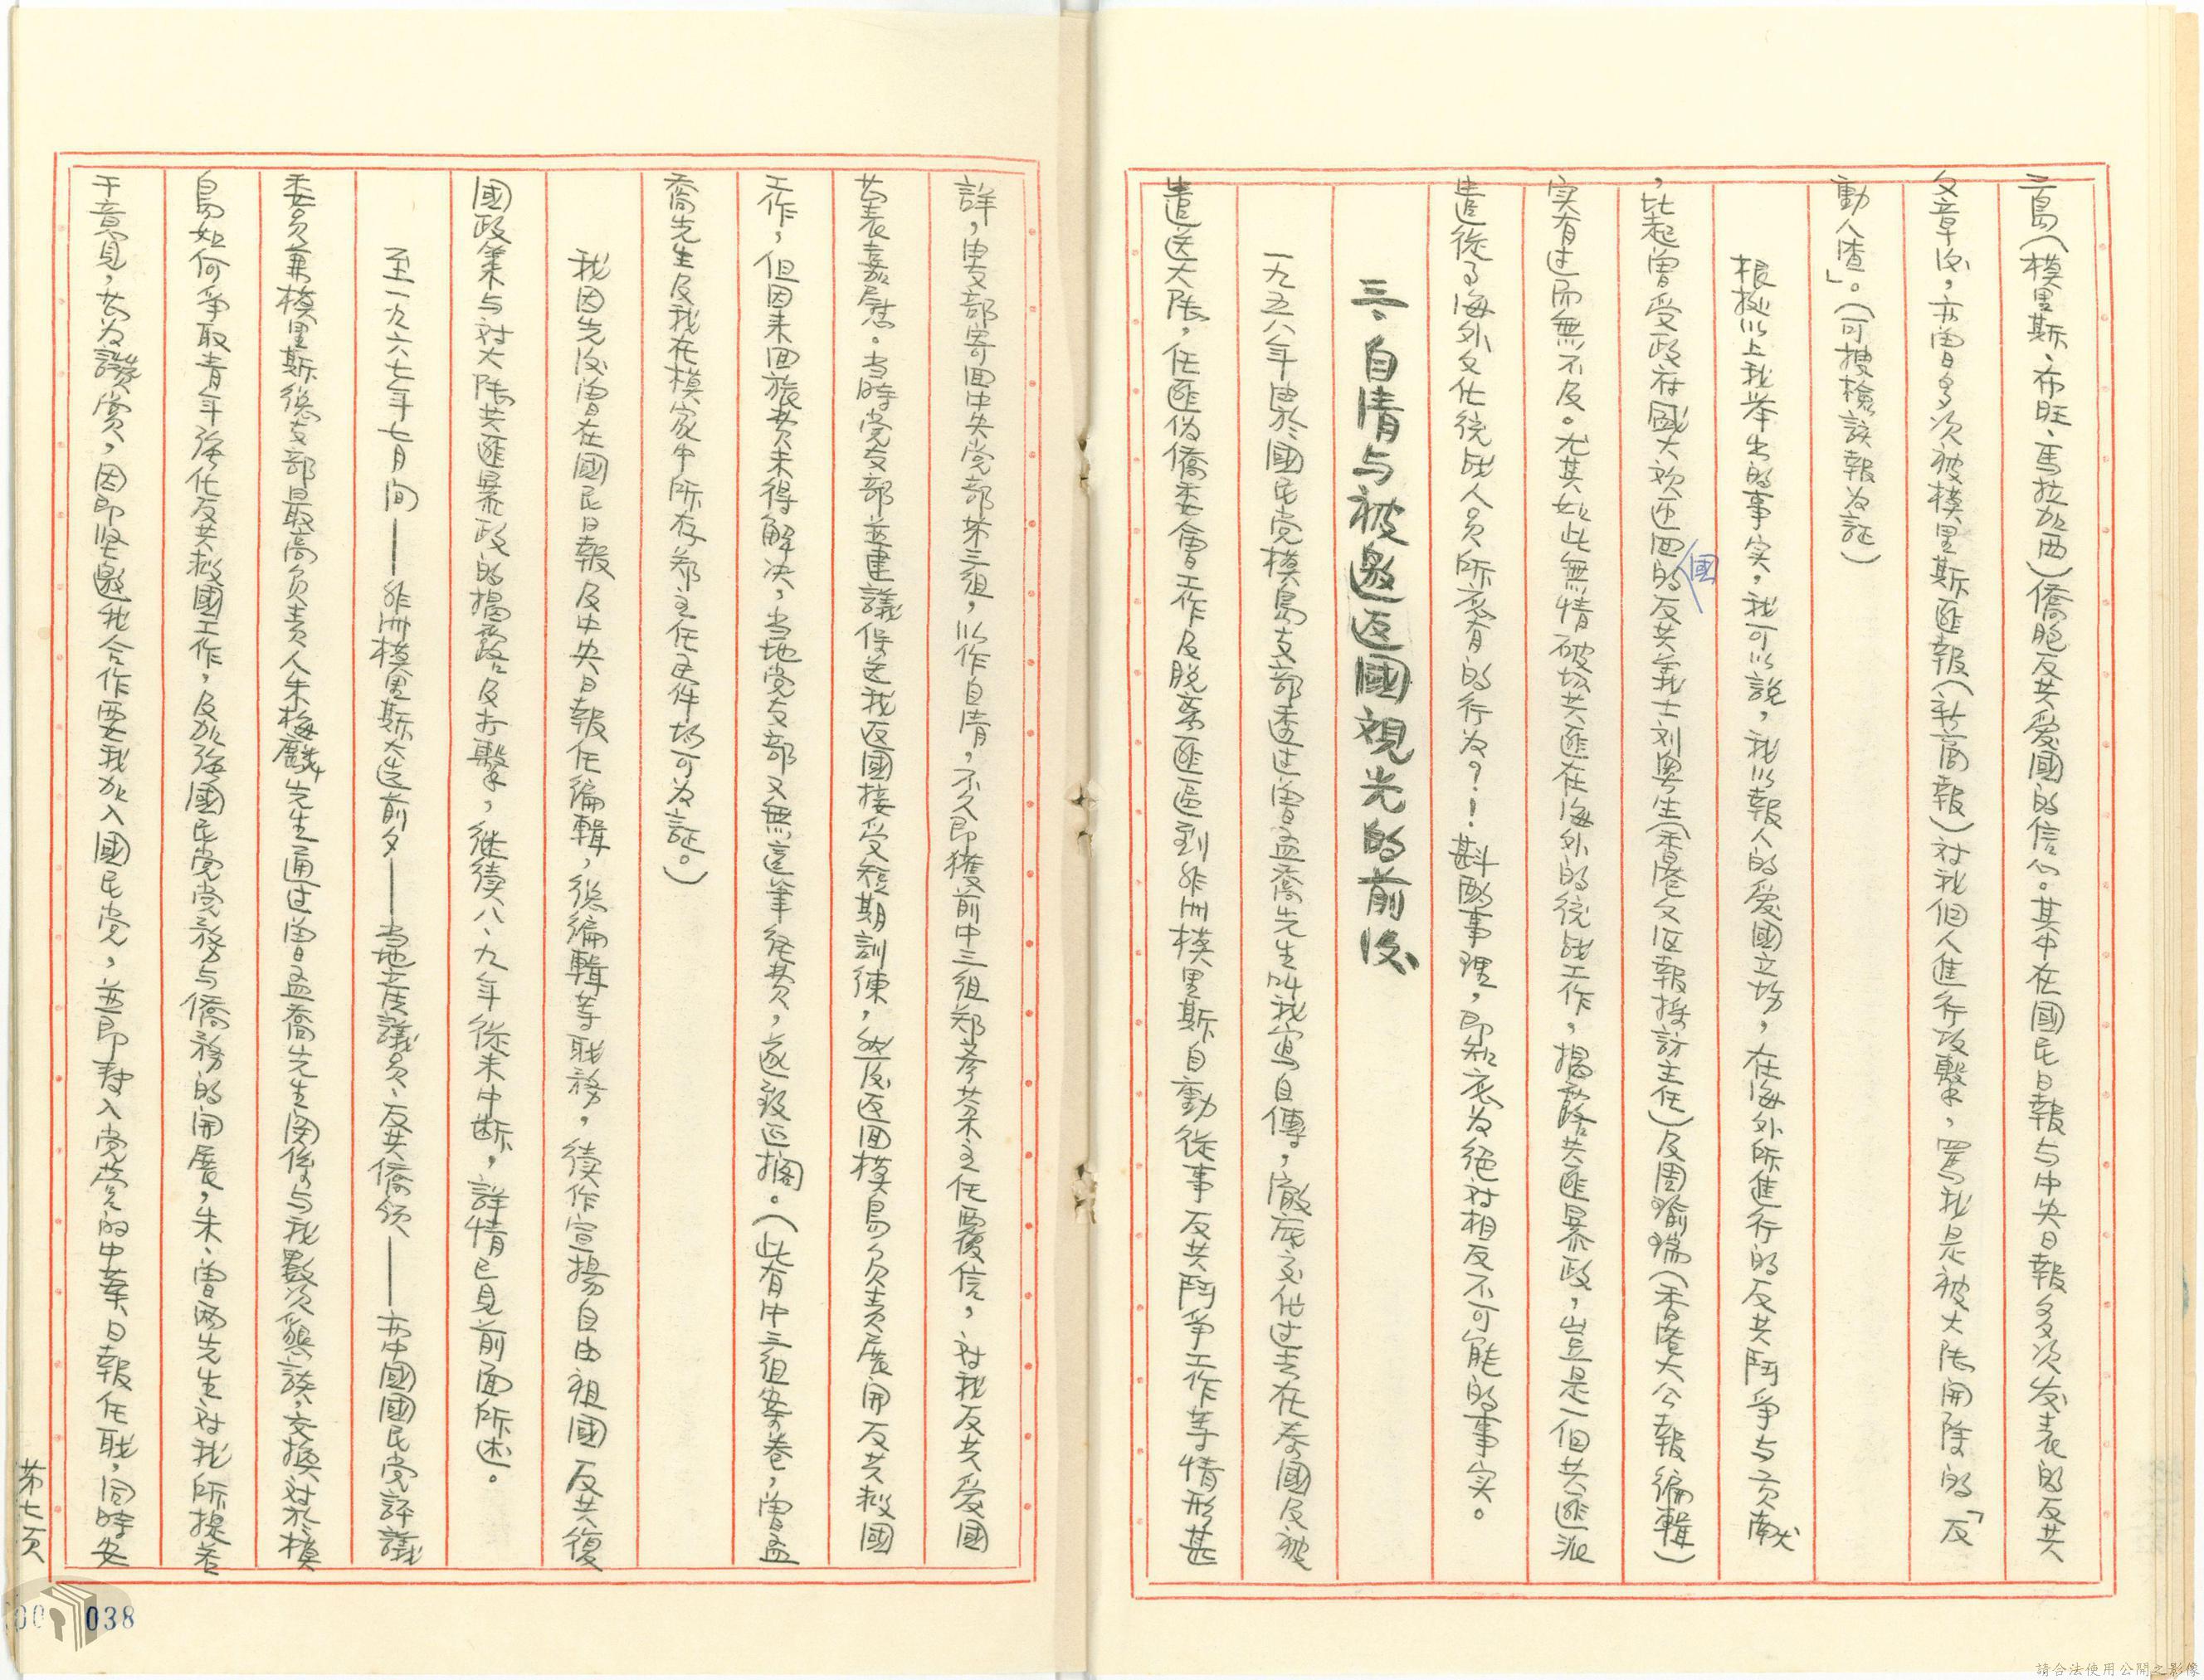 三島（模里斯、布旺、馬拉加西）僑胞反共爱國的信心。其中在國民日報与中央日報多次发表的反共
文章後，亦曾多次被模里斯匪報（新商報）对我個人進行攻擊，罵我是被大陸開除的「反
動人渣」。（可搜檢該報为証）
根据以上我举出的事实，我可以說，我以報人的爱國立场，在海外所進行的反共鬥爭与贡献
，比起曾受政府國大欢迎回國的反共義士刘興生（香港文匯報採訪主任）及周瑜瑞（香港大公報編輯）
实有过而無不及。尤其如此無情破坏共匪在海外的统战工作，揭露共匪暴政，岂是一個共匪派
遣從事海外文化统战人员所应有的行为？！斟酌事理，即知底为绝对相反不可能的事实。
三、自清与被邀返國观光的前後
一九五八年由於國民党模島支部透过曾孟喬先生叫我寫自傳，澈底交代过去在泰國及被
遣送大陸，任匪伪僑委會工作及脱离匪區到非洲模里斯自動從事反共鬥爭工作等情形甚
詳，由支部寄回中央党部第三組，以作自清，不久即獲前中三組郑彦棻主任覆信，对我反共爱國
芸表嘉慰。当時党支部並建議保送我返國接受短期訓練，然後返回模島负责展開反共救國
工作，但因来回旅费未得解决，当地党支部又無這筆经费，遂致延擱。（此有中三组案卷，曾孟
喬先生及我在模家中所存郑主任函件均可为証。）
我因先後曾在國民日報及中央日報任編輯，總編輯等职務，续作宣揚自由祖國反共復
國政策与对大陸共匪暴政的揭露及打擊，继續八、九年從未中断，詳情已見前面所述。
至一九六七年七月间——非洲模里斯大选前夕——当地立法議員、反共僑领——亦中國國民党評議
委员兼模里斯總支部最高负责人朱梅麟先生通过曾孟喬先生関係与我數次懇談，交換对於模
島如何爭取青年強化反共救國工作，及加強國民党党務与僑務的開展，朱、曾两先生对我所提若
干意見，甚为讚賞，因即坚邀我合作要我加入國民党，並即轉入党营的中華日報任职，同時安
第七頁
00 038
請合法使用公開之影像